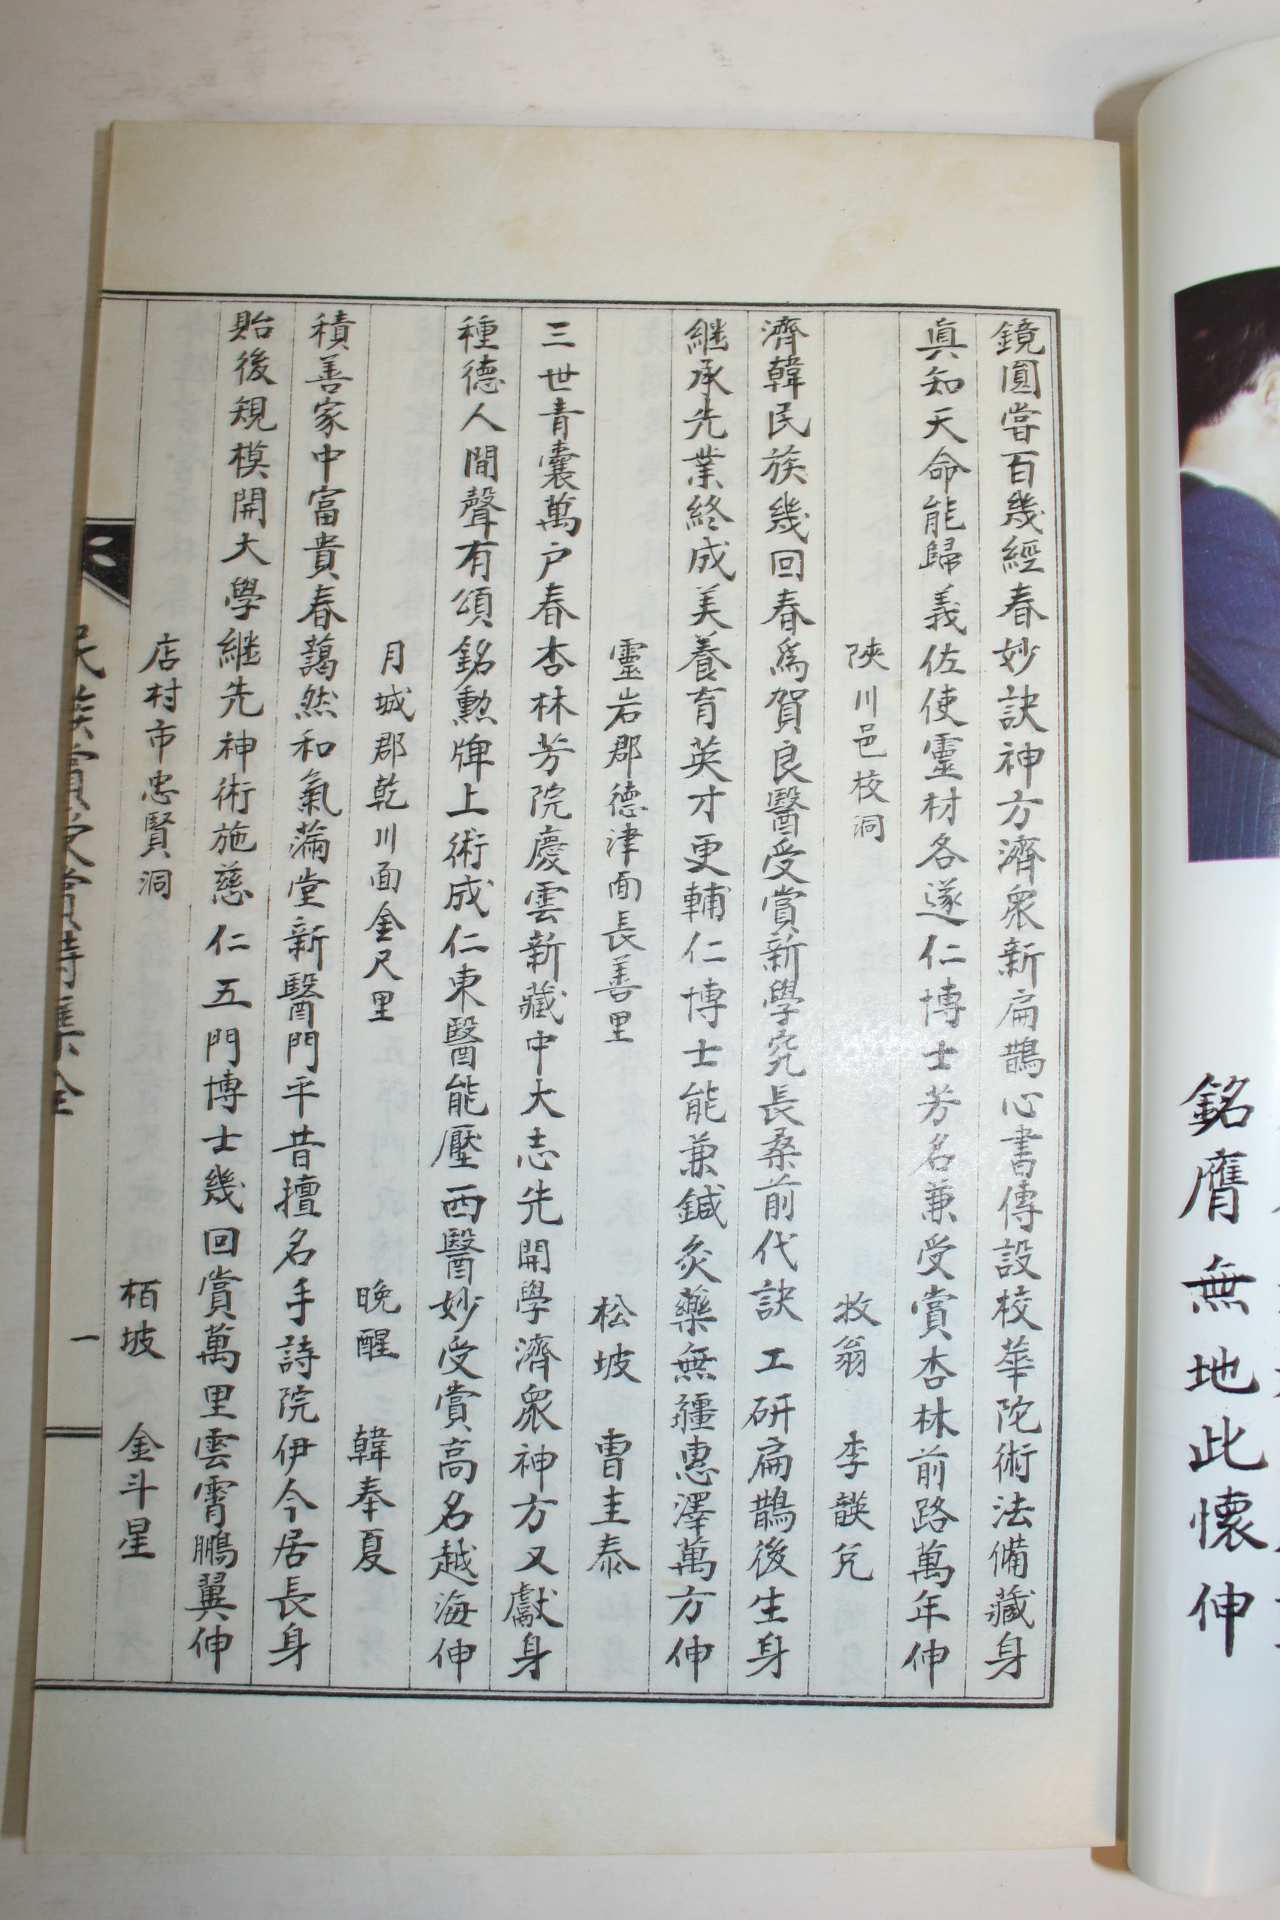 銘膺無地此懷伸
鏡圓嘗百幾經春妙訣神方濟衆新扁鵲心書傳設校華陀術法備藏身
眞知天命能歸義佐使靈材各遂仁博士芳名兼受賞杏林前路萬年伸
陜川邑校洞 牧翁 李 兌
濟韓民族幾回春爲賀良醫受賞新學究長桑前代訣工研扁鵲後生身
継承先業終成美養育英才更輔仁博士能兼鍼灸藥無疆惠澤萬方伸
靈岩郡德津面長善里 松坡 曺圭泰
三世青囊萬户春杏林芳院慶雲新藏中大志先開學濟衆神方又獻身
種德人間聲有頌銘勲牌上術成仁東醫能壓西醫妙受賞高名越海伸
月城郡乾川面金尺里 晩醒 韓奉夏
積善家中富貴春藹然和氣滿堂新醫門平昔擅名手詩院伊今居長身
貽後規模開大學継先神術施慈仁五門博士幾回賞萬里雲霄鵬翼伸
店村市忠賢洞 栢坡 金斗星
民族賞受賞詩集全
一